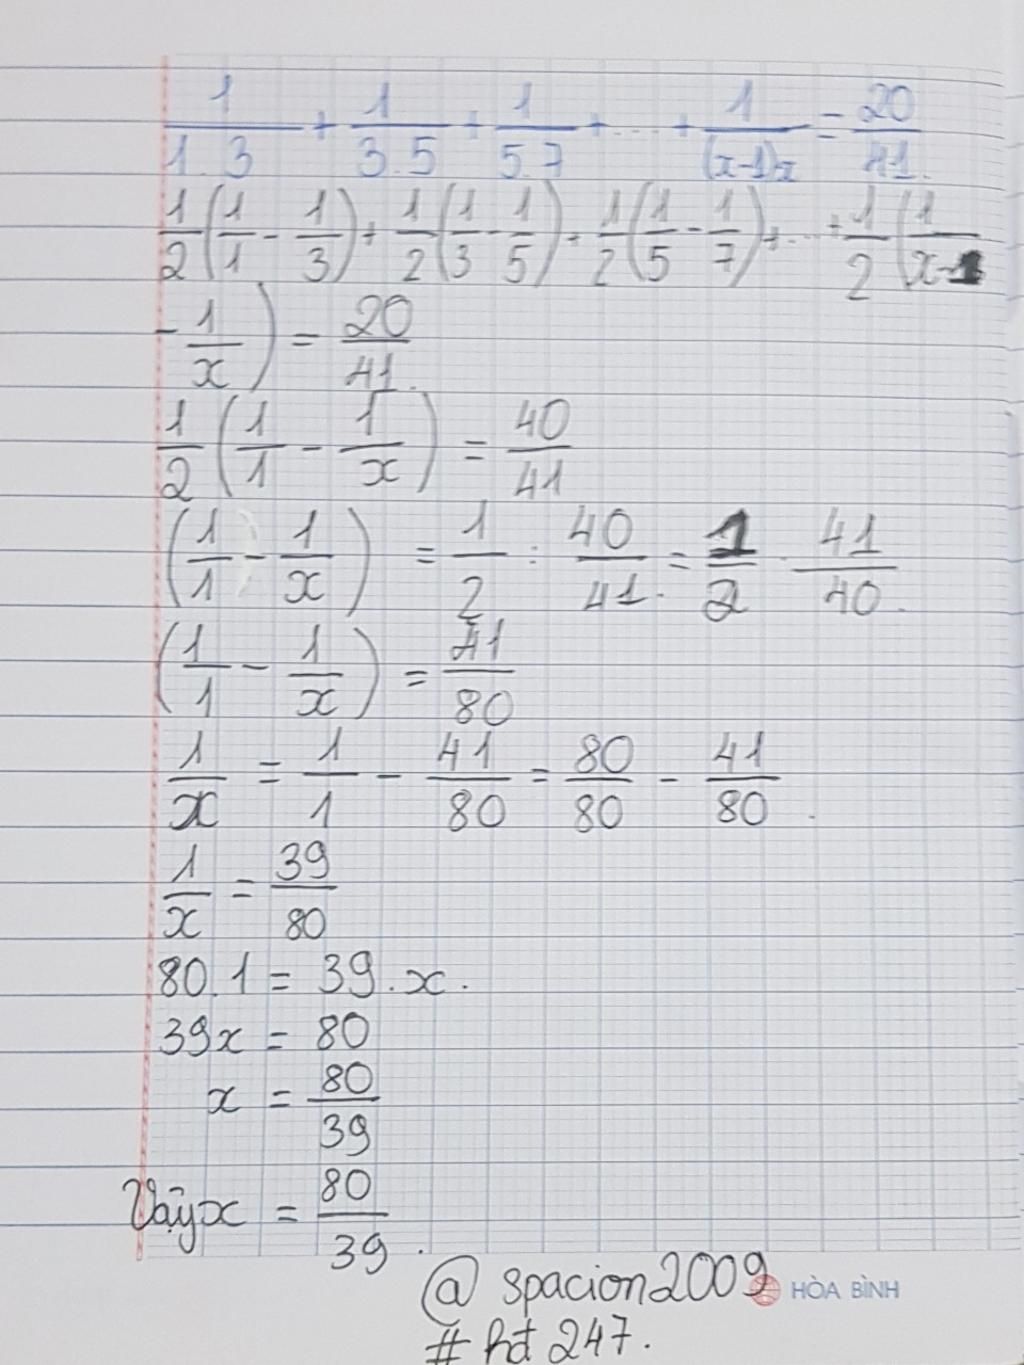 1/1.3 + 1/3.5 + 1/5.7 + ... + 1/(x-1)x = 20/41.
1/2(1/1 - 1/3) + 1/2(1/3 - 1/5) + 1/2(1/5 - 1/7) + ... + 1/2(1/x-1
- 1/x) = 20/41.
1/2(1/1 - 1/x) = 40/41
(1/1 - 1/x) = 1/2 : 40/41. = 1/2 . 41/40.
(1/1 - 1/x) = 41/80
1/x = 1/1 - 41/80 = 80/80 - 41/80.
1/x = 39/80
80.1 = 39.x.
39x = 80
x = 80/39
Vậy x = 80/39.
@ spacion2009
HÒA BÌNH
# hđ 247.